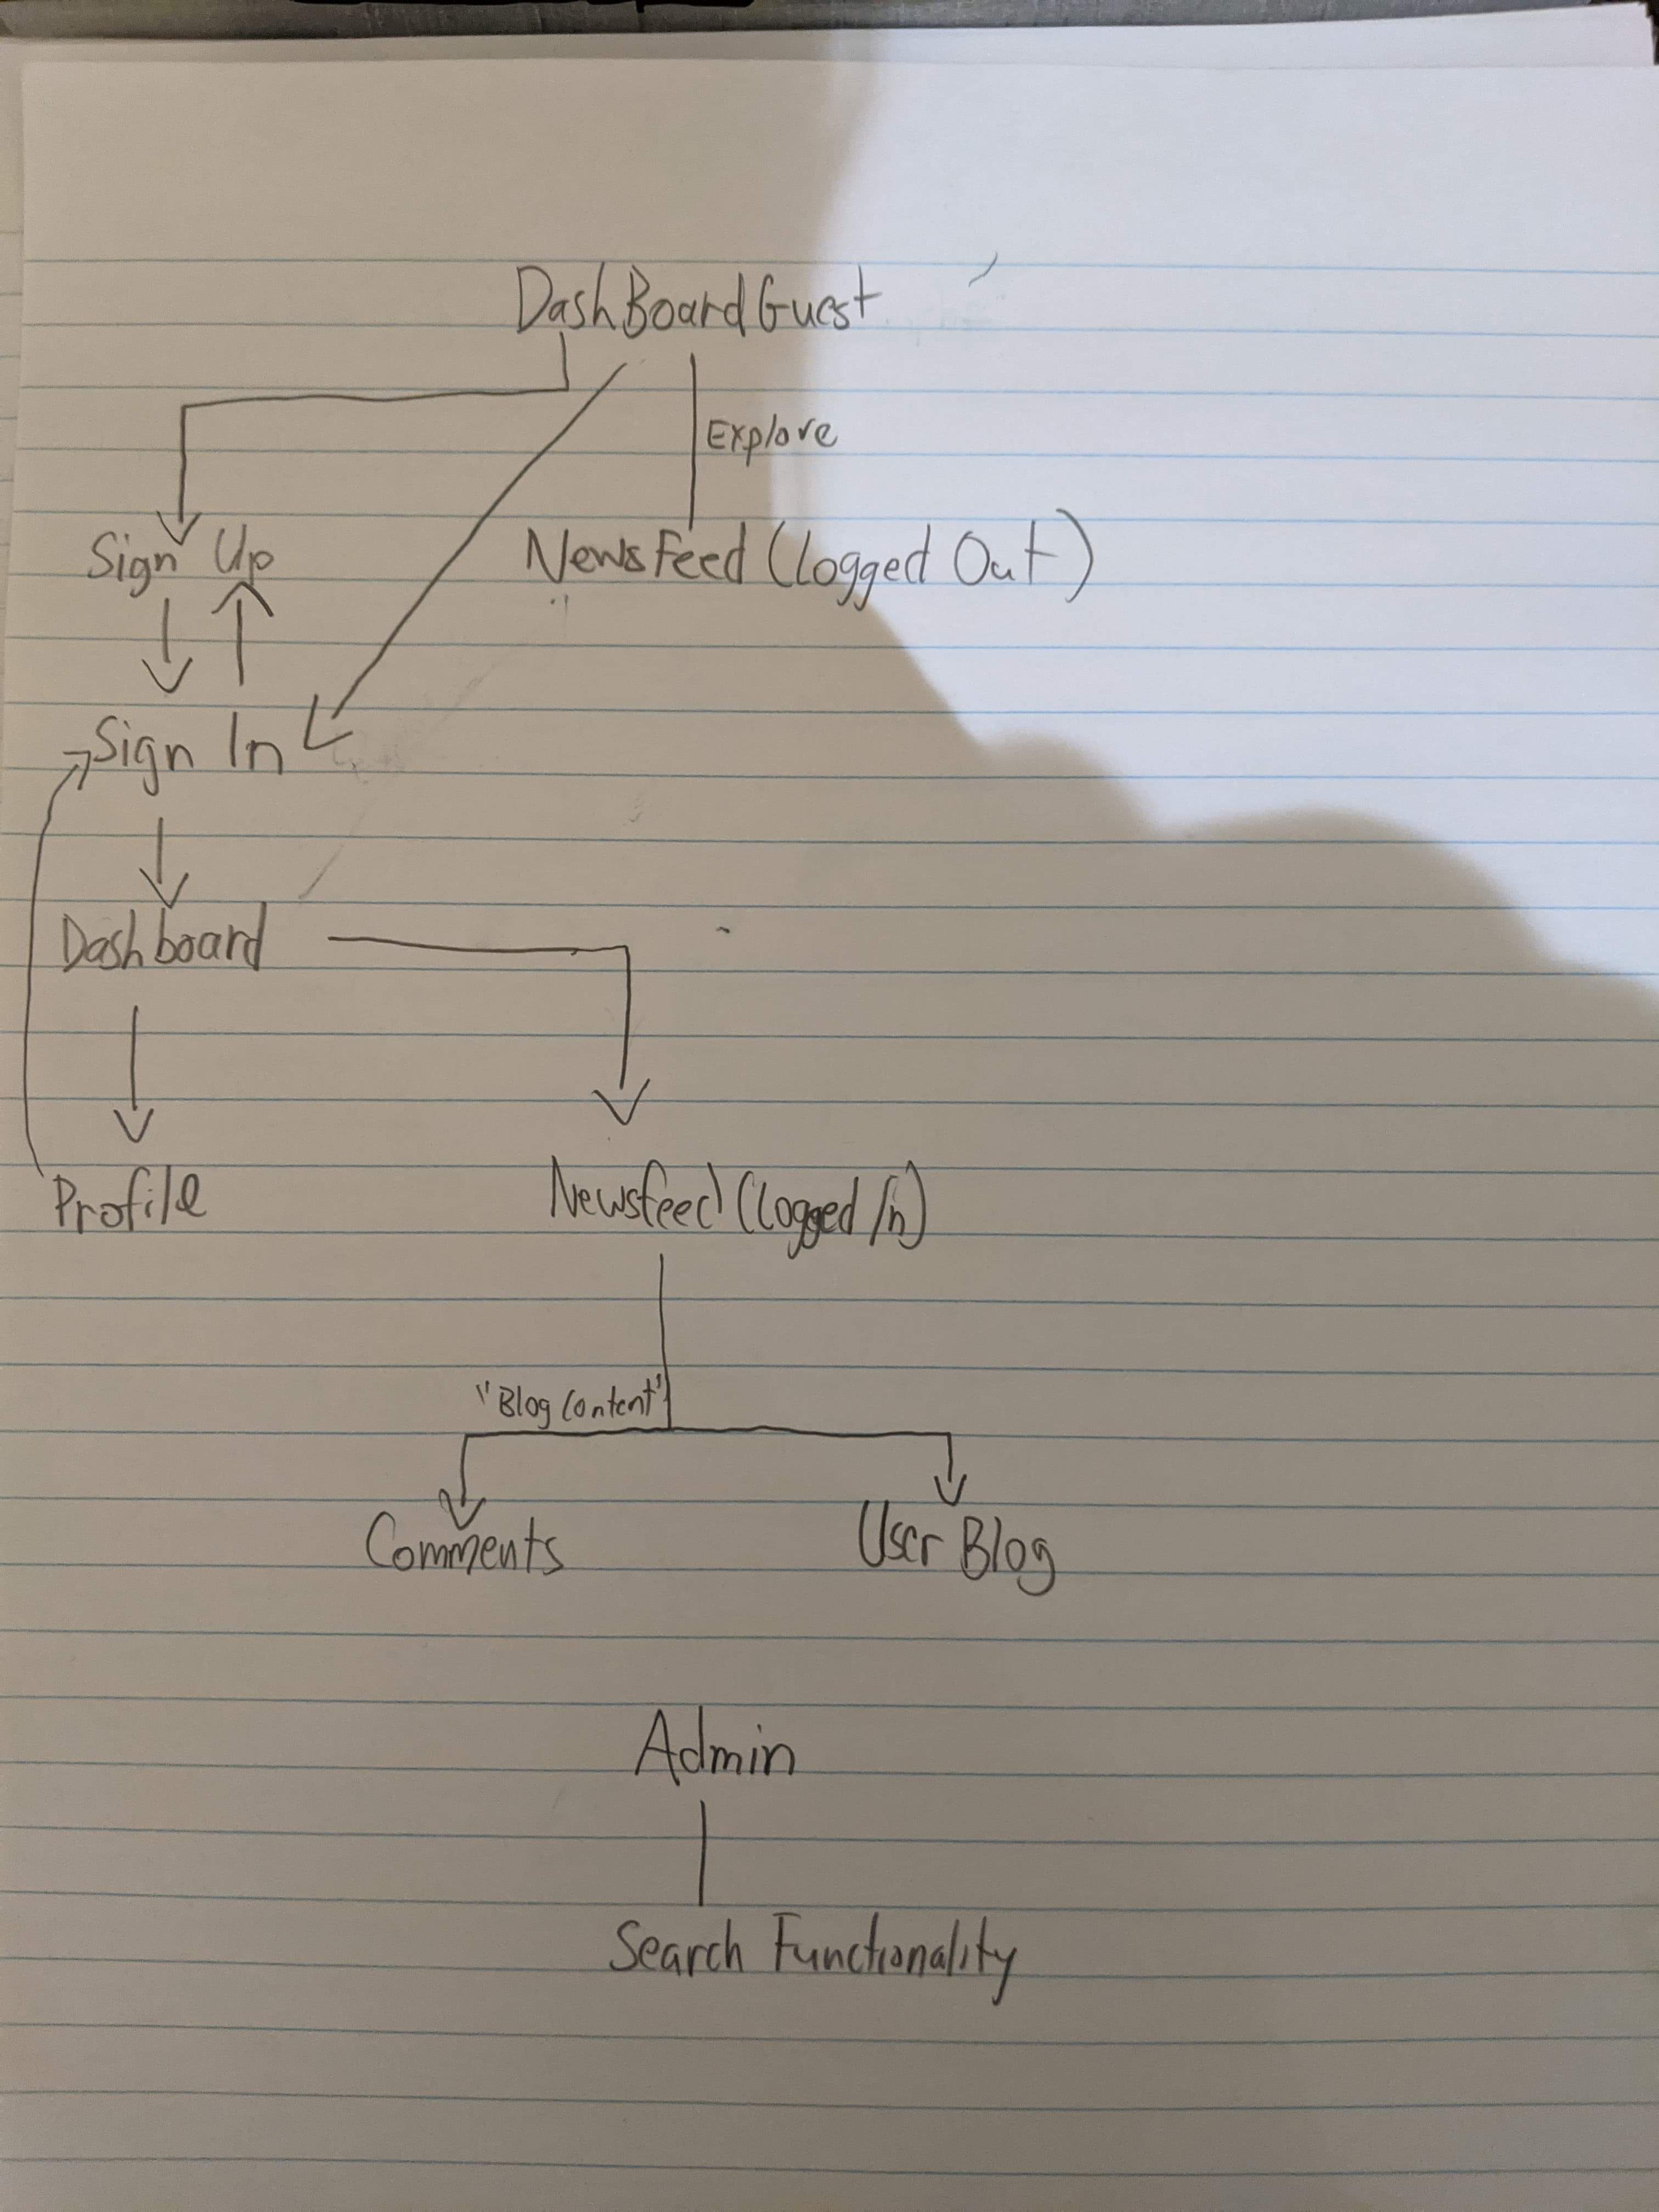 DashBoard Guest
Explore
Sign Up
NewsFeed (Logged Out)
Sign In
Dashboard
Profile
Newsfeed (Logged In)
"Blog Content"
Comments
User Blog
Admin
Search Functionality